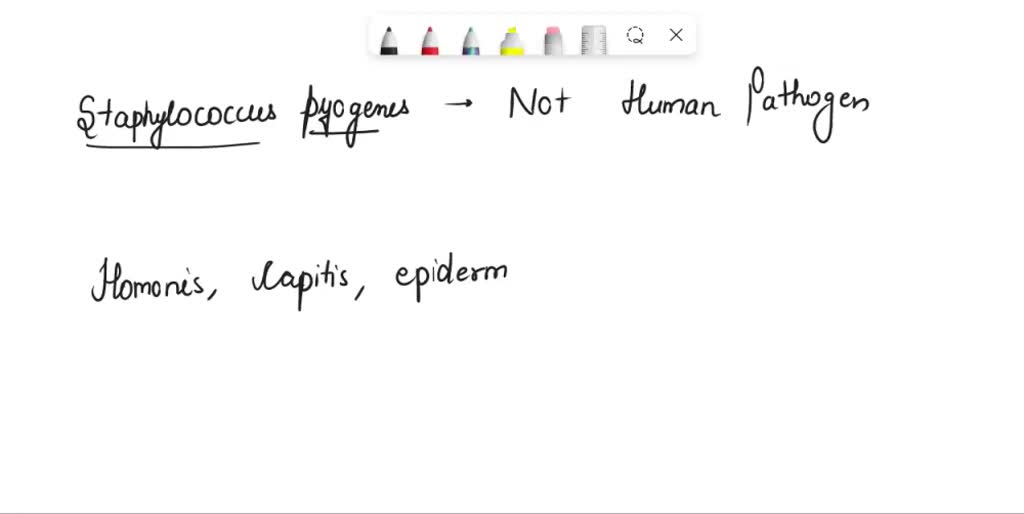 Staphylococcus pyogenes → Not Human Pathogen
Homonis, Capitis, epiderm